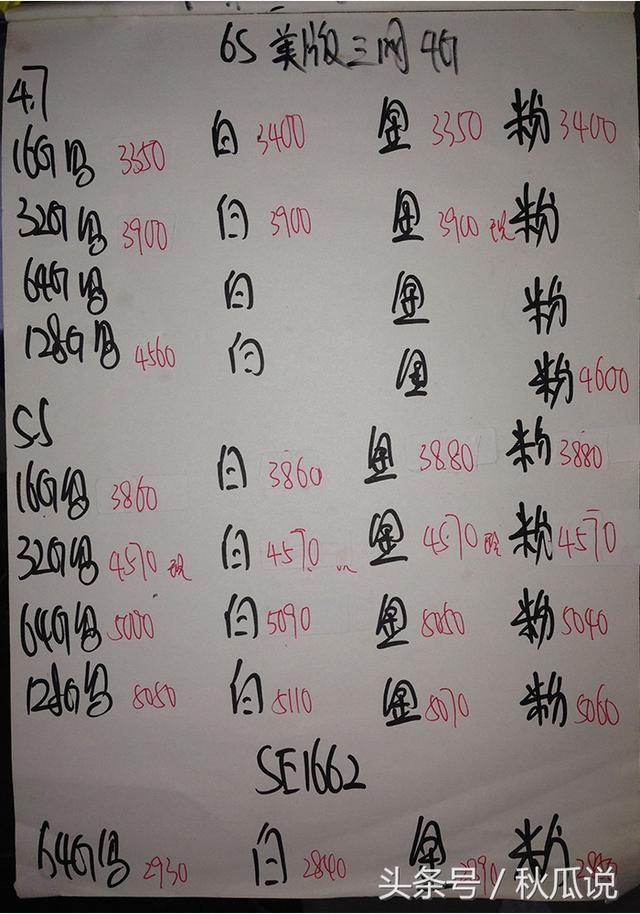 6S 美版三网 4G
4.7
16G黑 3350 白 3400 金 3350 粉 3400
32G黑 3900 白 3900 金 3900 现 粉
64G黑 白 金 粉
128G黑 4560 白 金 粉 4600
5.5
16G黑 3860 白 3860 金 3880 粉 3880
32G黑 4570 现 白 4570 金 4570 现 粉 4570
64G黑 5000 白 5090 金 5050 粉 5040
128G黑 5050 白 5110 金 5070 粉 5060
SE1662
64G黑 2930 白 2840 金 粉
头条号 / 秋瓜说